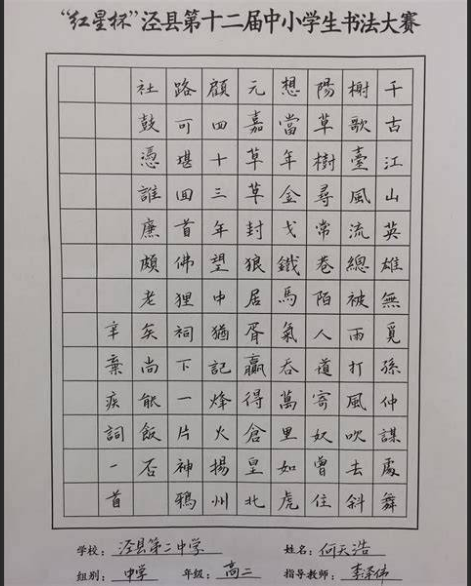 “红星杯”泾县第十二届中小学生书法大赛
千古江山英雄無覓孫仲謀處舞
榭歌臺風流總被雨打風吹去斜
陽草樹尋常巷陌人道寄奴曾住
想當年金戈鐵馬氣吞萬里如虎
元嘉草草封狼居胥贏得倉皇北
顧四十三年望中猶記烽火揚州
路可堪回首佛狸祠下一片神鴉
社鼓憑誰廉頗老矣尚能飯否
辛棄疾詞一首
学校：泾县第二中学 姓名：何天浩
组别：中学 年级：高二 指导教师：李泽伟